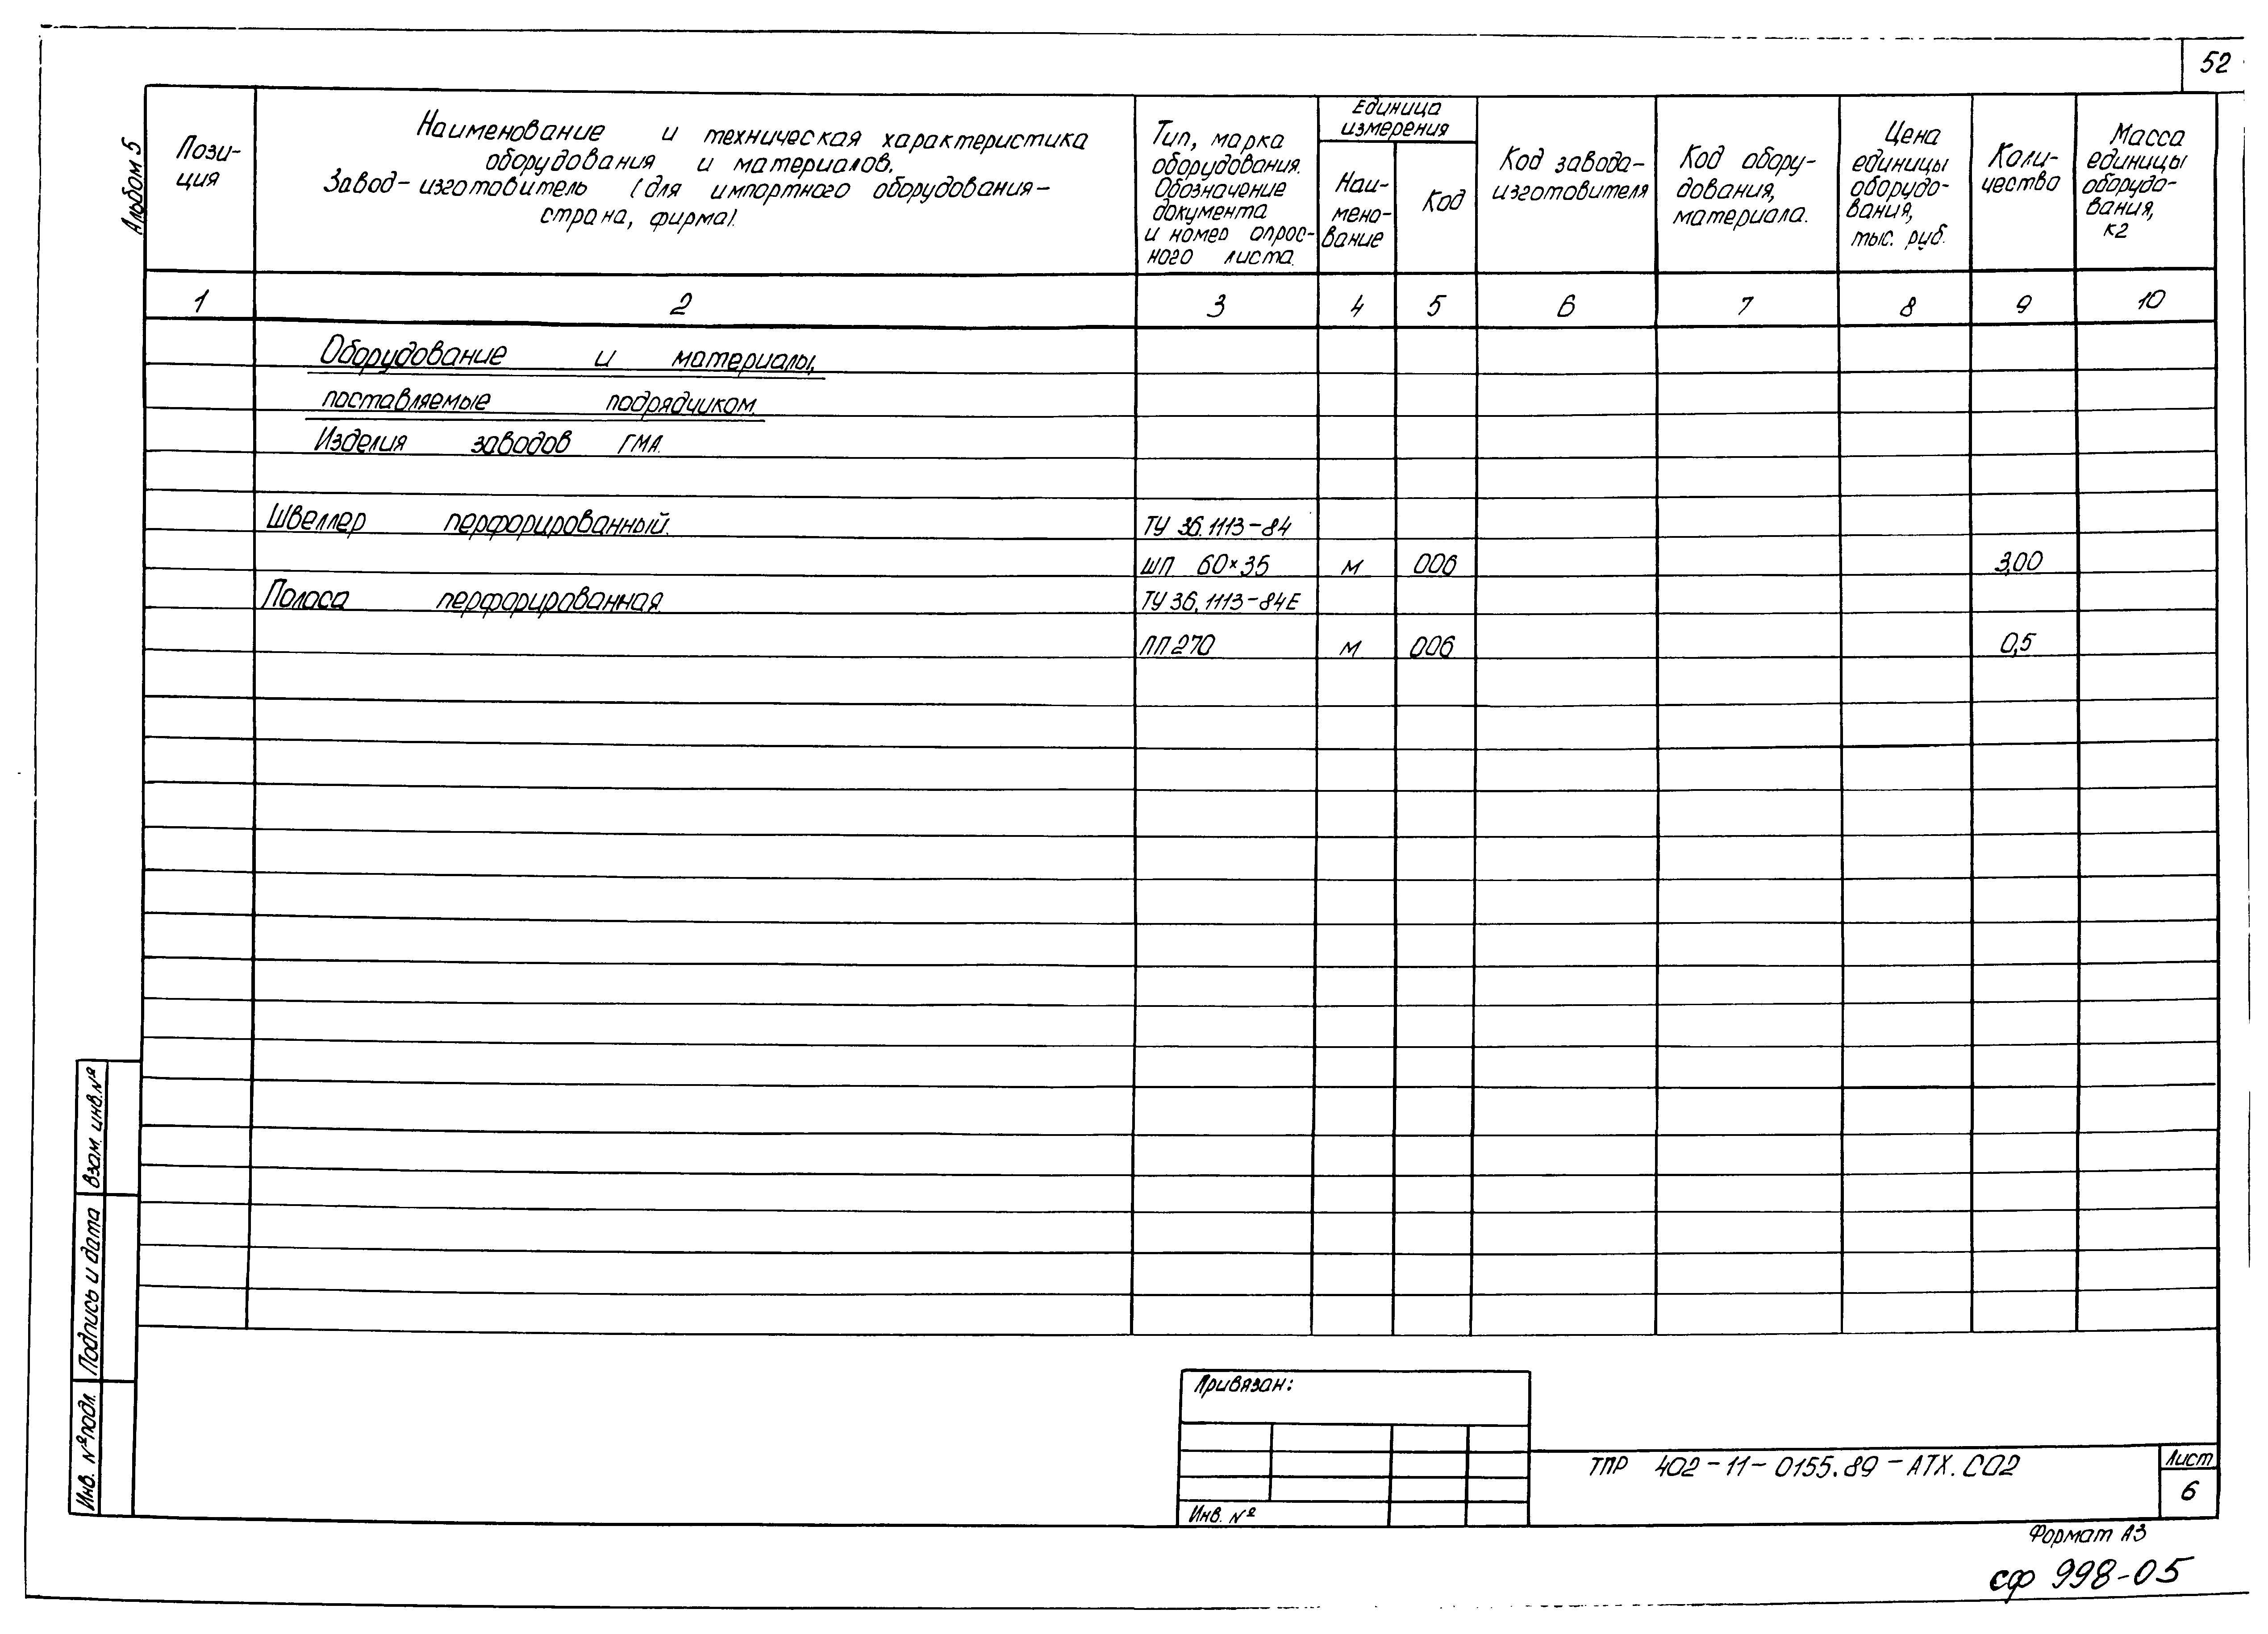 52
Альбом 5
Пози-
ция
Наименование и техническая характеристика
оборудования и материалов.
Завод-изготовитель (для импортного оборудования-
страна, фирма).
Тип, марка
оборудования.
Обозначение
документа
и номер опрос-
ного листа.
Единица
измерения
Наи-
мено-
вание
Код
Код завода-
изготовителя
Код обору-
дования,
материала.
Цена
единицы
оборудо-
вания,
тыс. руб.
Коли-
чество
Масса
единицы
оборудо-
вания,
кг
1 2 3 4 5 6 7 8 9 10
Оборудование и материалы,
поставляемые подрядчиком.
Изделия заводов ГМА.
Швеллер перфорированный. ТУ 36.1113-84
ШП 60×35 м 006 3,00
Полоса перфорированная. ТУ 36.1113-84Е
ПП 270 м 006 0,5
Взам. инв. №
Подпись и дата
Инв. № подл.
Привязан:
Инв. №
ТПР 402-11-0155.89-АТХ.СО2
Лист
6
Формат А3
сф 998-05